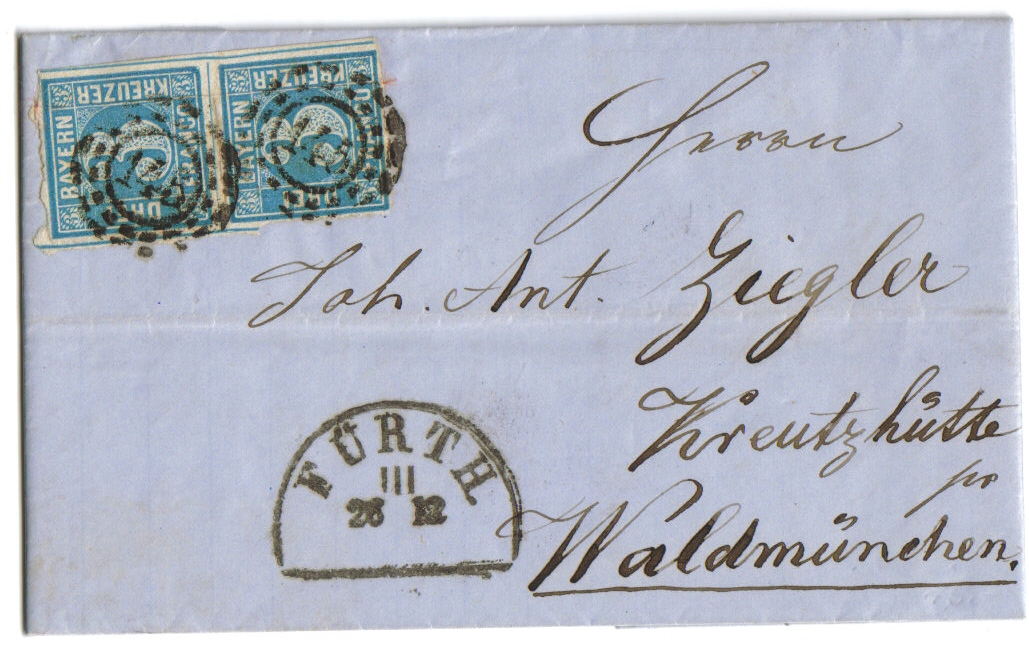 BAYERN KREUZER FRANCO DR
BAYERN KREUZER
Herrn
Joh. Ant. Ziegler
Kreutzhütte
pr
Waldmünchen.
FÜRTH
III
26 12